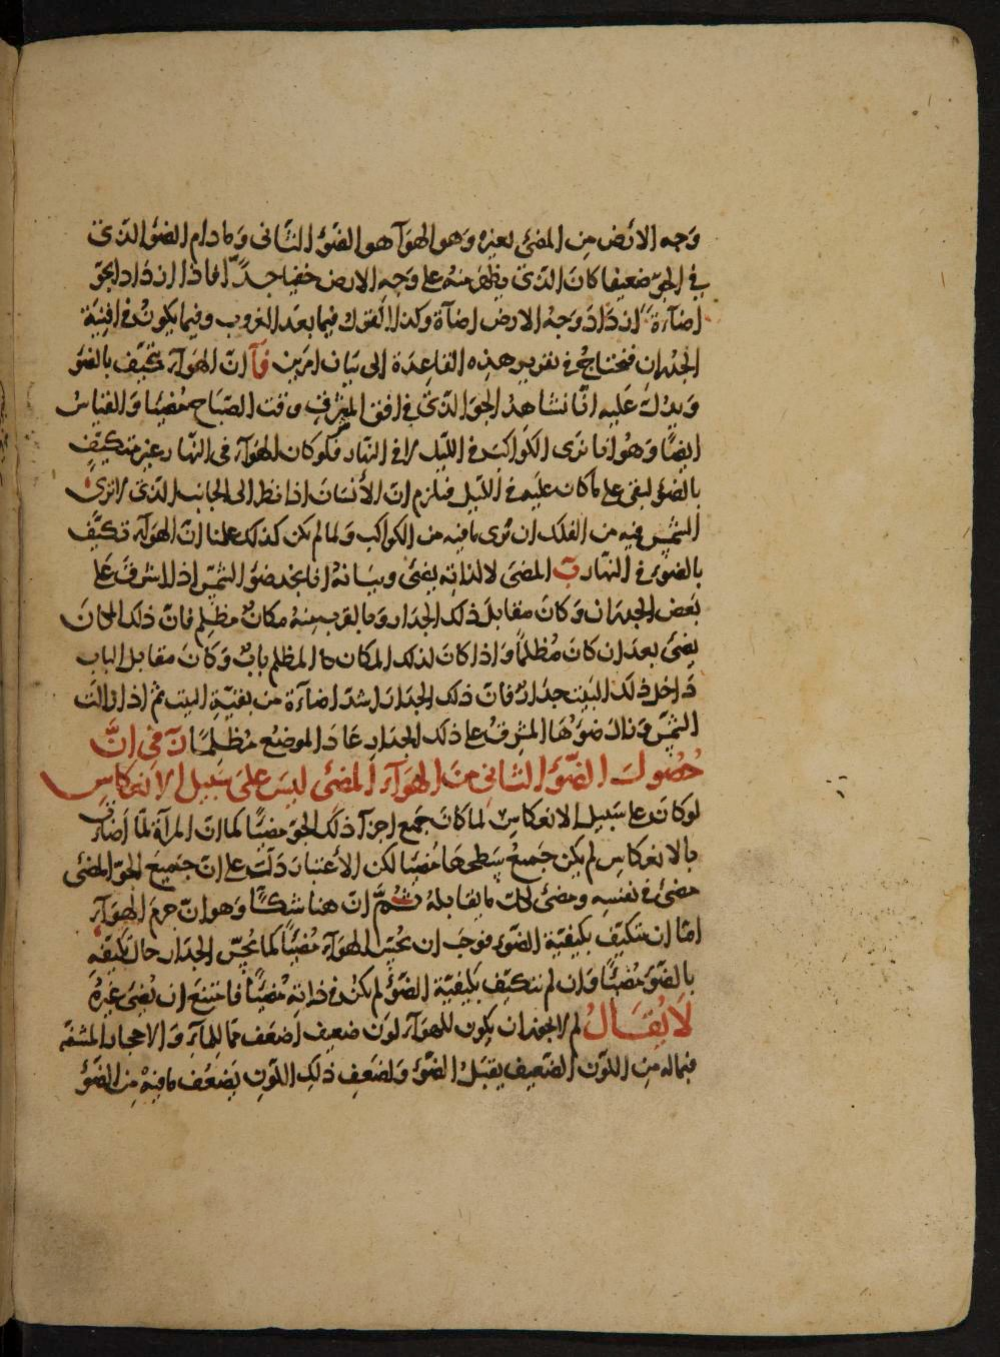 وجه الارض من المضئ لغيره وهو الهوآ هو الضوء الثانى وما دام الضوالذى
فى الجو ضعيفا كان الذى يظهر منه على وجه الارض خفيا جدا فاذا ازداد الجو
اضاءة ازداد وجه الارض اضآة وكذا القول فيما بعد الغروب وفيما يكون فى افنية
الجدران فنحتاج فى تقرير هذه القاعدة الى بيان امرين آ ان الهوآء تكيف بالضو
ويدل عليه انا نشاهد الجو الذى فى افق المشرق وقت الصباح مضيئا والقياس
ايضا وهو انا نرى الكواكب فى الليل لا فى النهار فلو كان الهوآء فى النهار غير متكيف
بالضو لبقى على ما كان عليه فى الليل فيلزم ان الانسان اذا نظر الى الجانب الذى لا نرى
الشمس فيه من الفلك ان نرى ما فيه من الكواكب ولما لم يكن كذلك علمنا ان الهوآء تكيف
بالضوء فى النهار ب المضئ لا لذاته يضئ وبيانه انا نجد ضوء الشمس اذا اشرق على
بعض الجدران وكان مقابل ذلك الجدار وما يقرب منه مكان مظلم فان ذلك المكان
يضئ بعد ان كان مظلما واذا كان لذلك المكان المظلم باب وكان مقابل الباب
داخل ذلك البيت جدار فان ذلك الجدار اشد اضآءة من بقية البيت ثم اذا زالت
الشمس وزال ضوءها المشرق على ذلك الجدار عاد الموضع مظلما ن فى ان
حصول الضوء الثانى من الهوآء المضئ ليس على سبيل الانعكاس
لو كان على سبيل الانعكاس لما كان جميع اجزآ ذلك الجو مضيئا كما ان المرآة لما اضآت
بالانعكاس لم يكن جميع سطحها مضيئا لكن الاعتبار دلت على ان جميع الجو المضئ
مضئ فى نفسه ومضئ لكل ما يقابله ثم ان هنا شكا وهو ان جرم الهوآء
اما ان يتكيف بكيفية الضوء فوجب ان يحس الهوآء مضيئا كما يحس الجدار حال تكيفه
بالضوء مضيئا وان لم يتكيف بكيفية الضوء لم يكن فى ذاته مضيئا فامتنع ان يضئ غيره
لا يقال لم لا يجوز ان يكون للهوآء لون ضعيف اضعف مما للمآء والاحجار المشفة
فبماله من اللون الضعيف يقبل الضوء ولضعف ذلك اللون يضعف ما فيه من الضوء